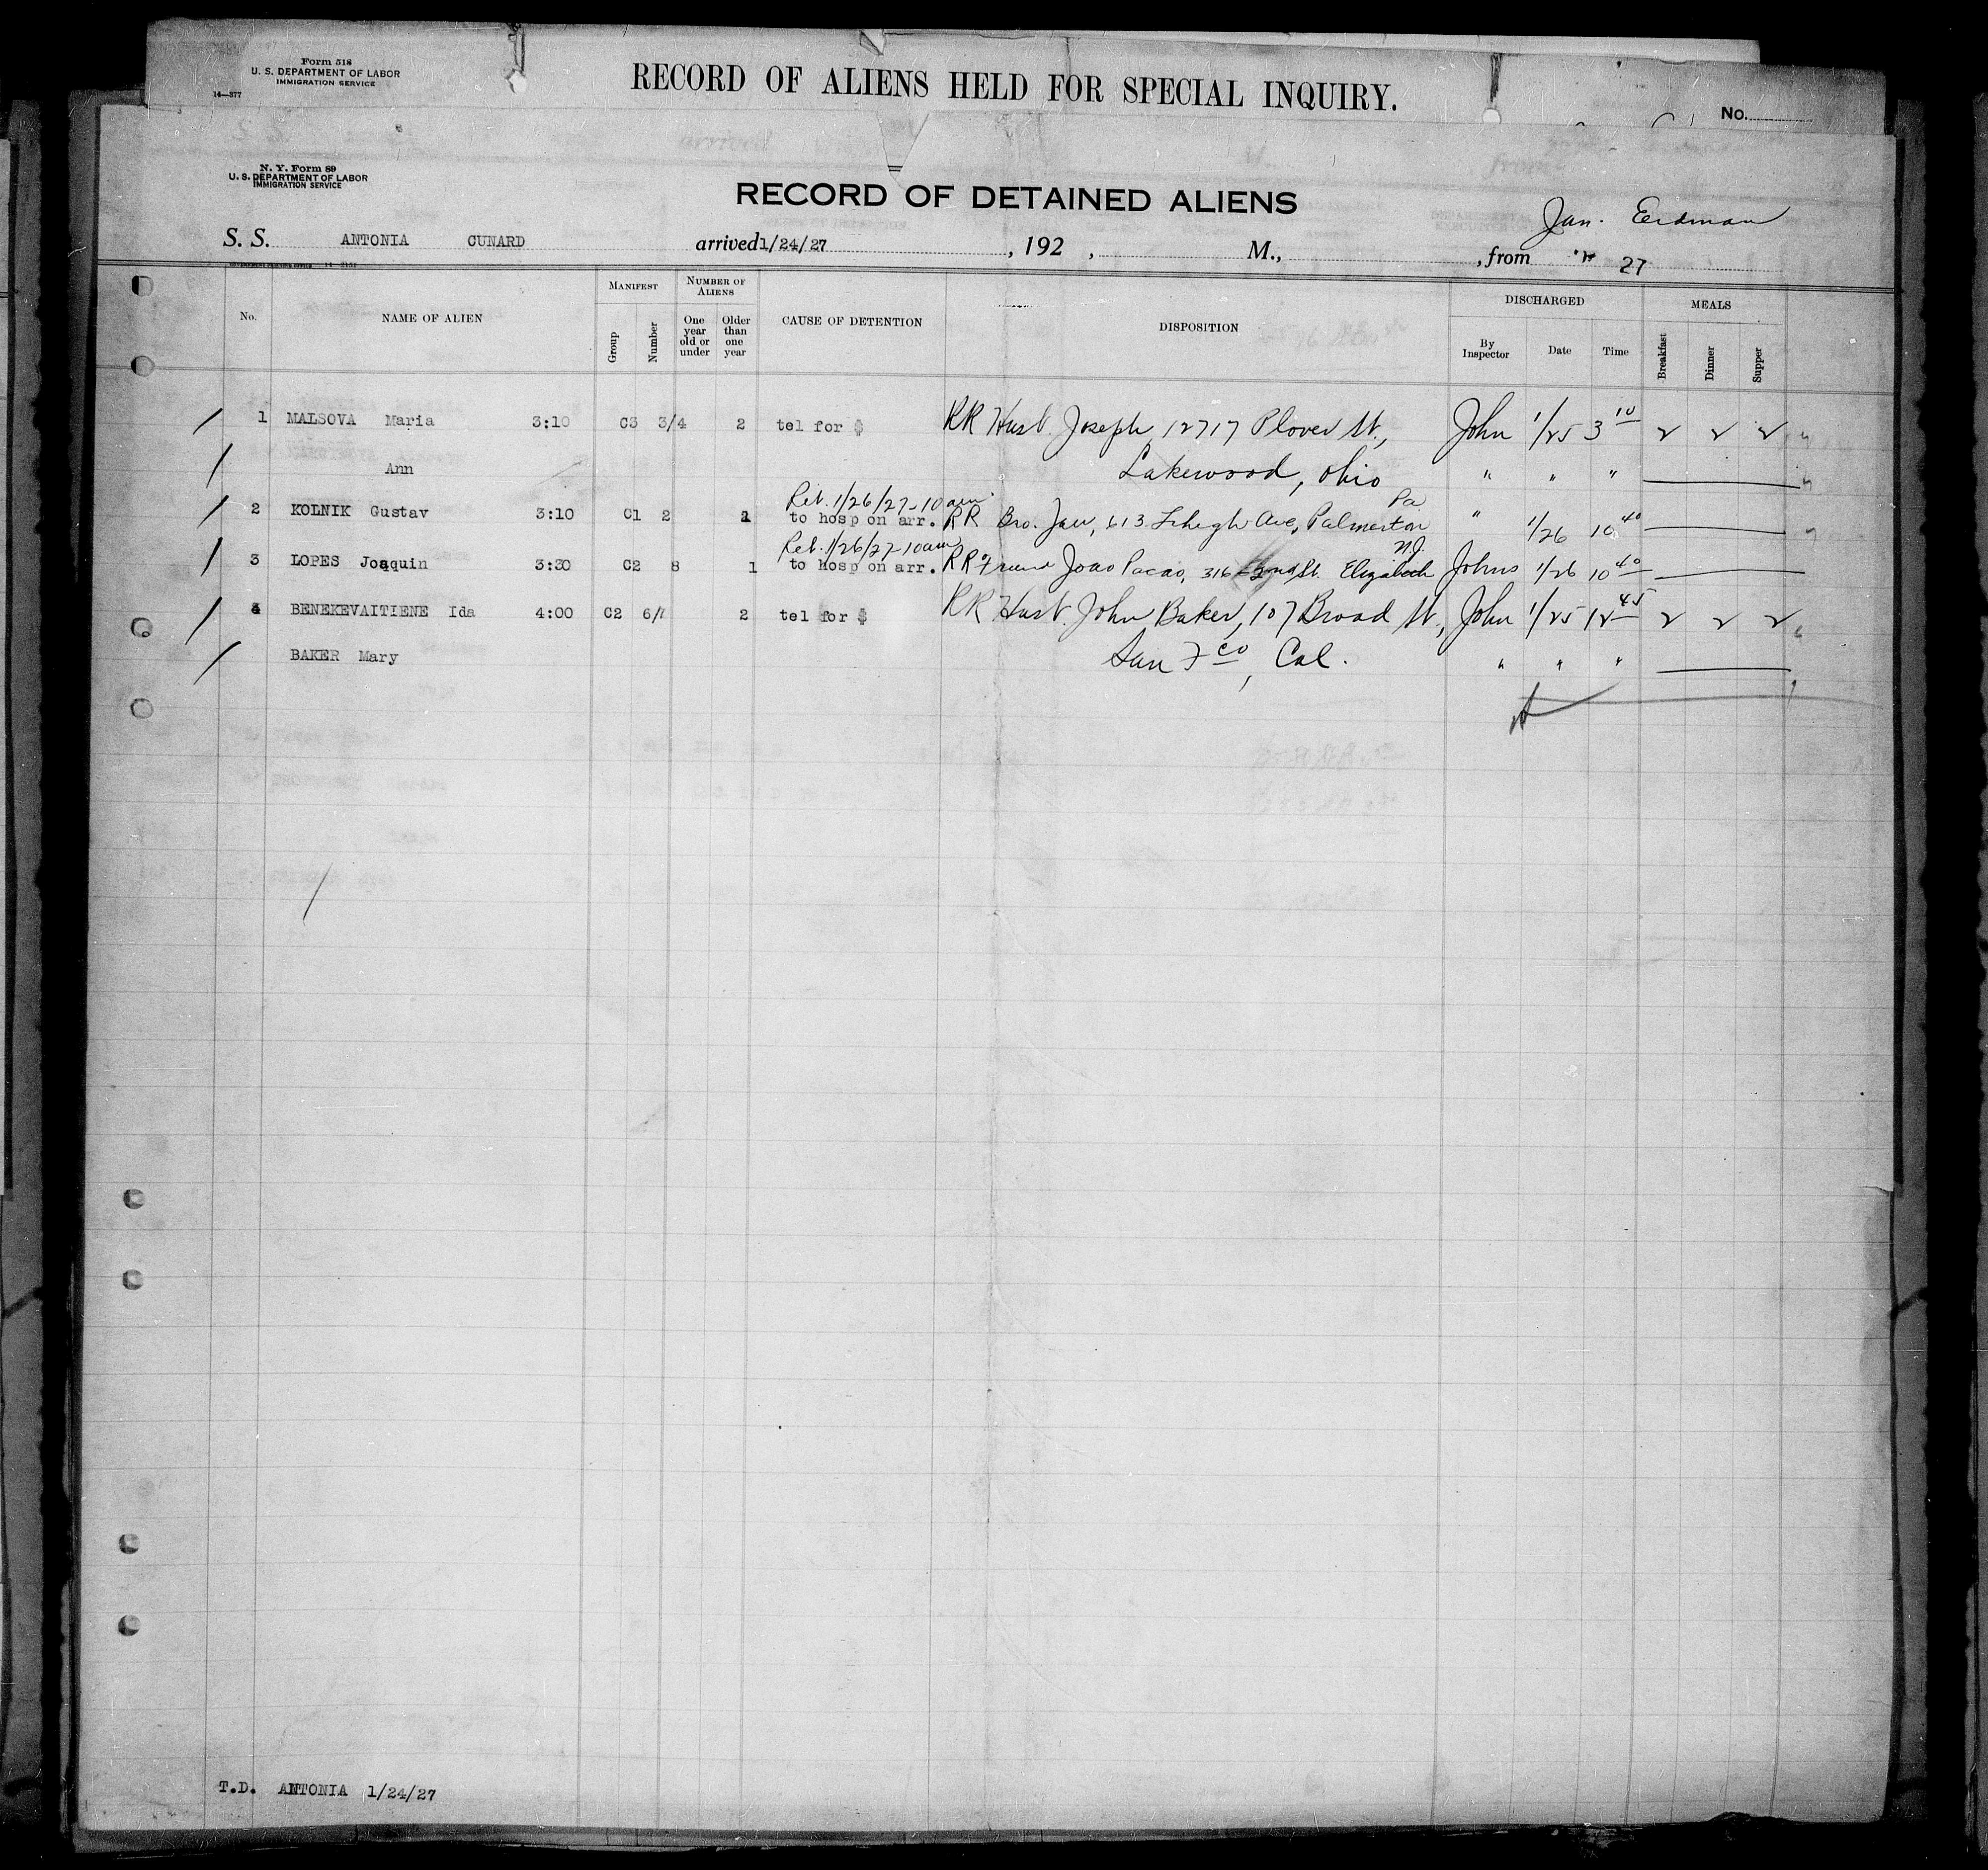 Form 518
U. S. DEPARTMENT OF LABOR
IMMIGRATION SERVICE
14—377
RECORD OF ALIENS HELD FOR SPECIAL INQUIRY.
No.
N. Y. Form 89
U. S. DEPARTMENT OF LABOR
IMMIGRATION SERVICE
RECORD OF DETAINED ALIENS
Jan. Erdman
S. S. ANTONIA CUNARD arrived 1/24/27, 192 , M., , from 27
No. NAME OF ALIEN MANIFEST Group Number NUMBER OF ALIENS One year old or under Older than one year CAUSE OF DETENTION DISPOSITION DISCHARGED By Inspector Date Time MEALS Breakfast Dinner Supper
1 MALSOVA Maria 3:10 C3 3/4 2 tel for $ RR Husb. Joseph, 12717 Plover St., John 1/25 3 10 2 2 2
Ann Lakewood, Ohio " " "
Ret. 1/26/27-10am Pa
2 KOLNIK Gustav 3:10 C1 2 1 to hosp on arr. RR Bro. Jan, 613 Lehigh Ave, Palmerton " 1/26 10 40
Ret. 1/26/27-10am N.J.
3 LOPES Joaquin 3:30 C2 8 1 to hosp on arr. RR Friend Joao Pacao, 316-2nd St. Elizabeth Johns 1/26 10 40
4 BENEKEVAITIENE Ida 4:00 C2 6/7 2 tel for $ RR Husb. John Baker, 107 Broad St, John 1/25 12 45 2 2 2
BAKER Mary San Fco, Cal. " " "
T.D. ANTONIA 1/24/27